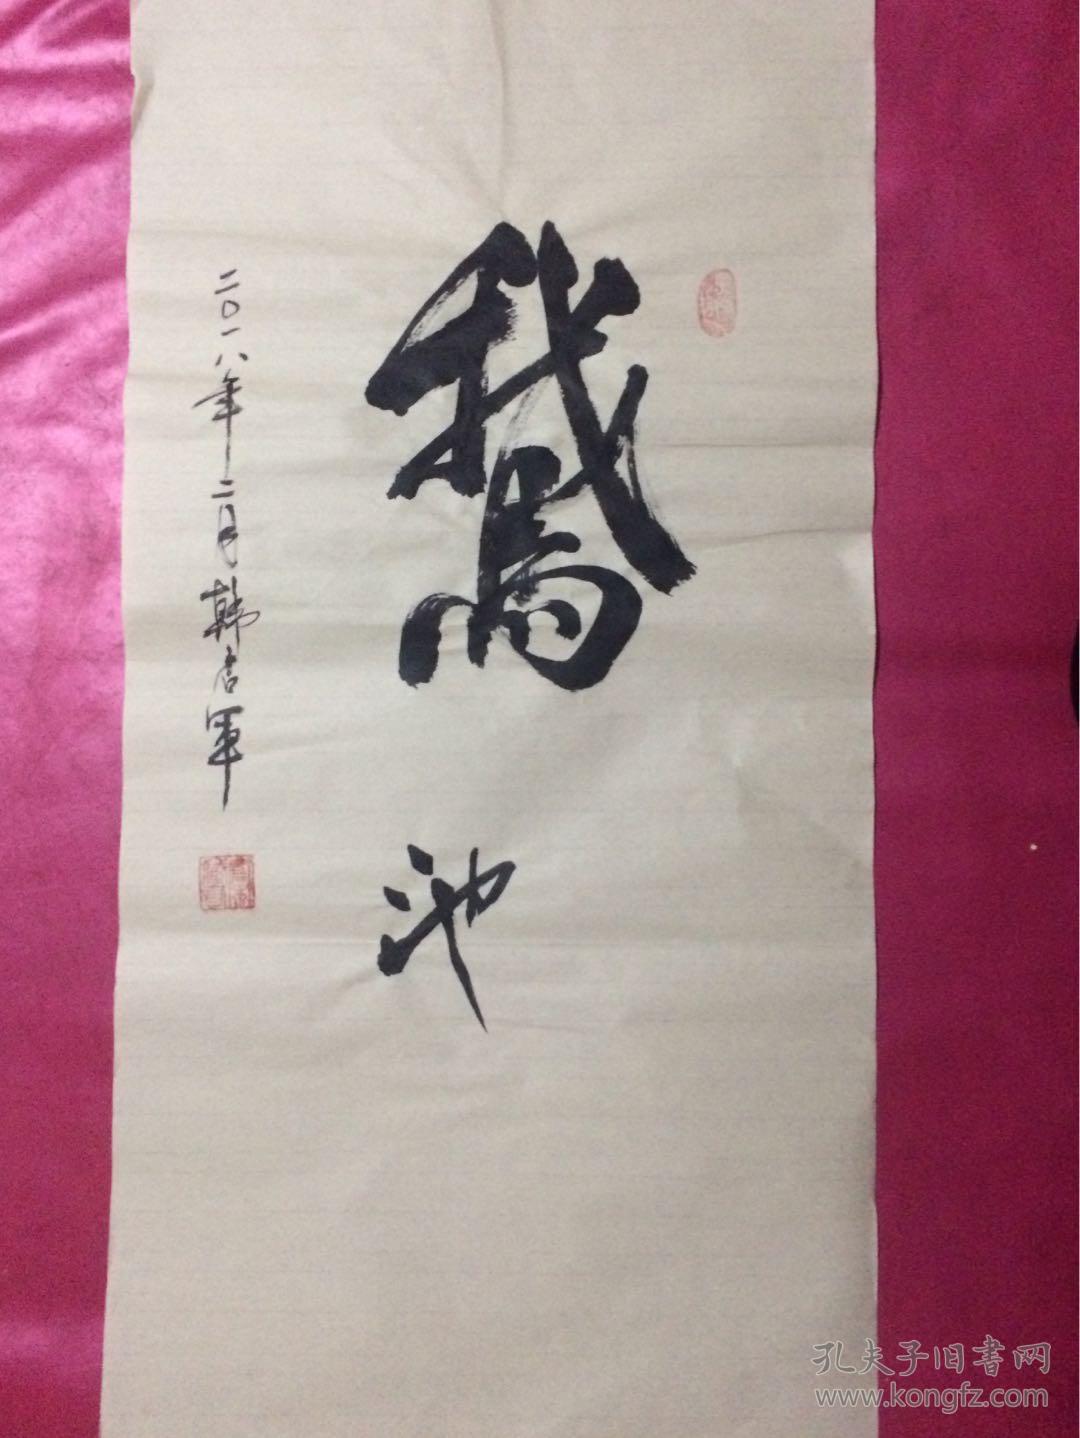 鵞
池
二〇一八年二月韩店军
孔夫子旧書网
www.kongfz.com